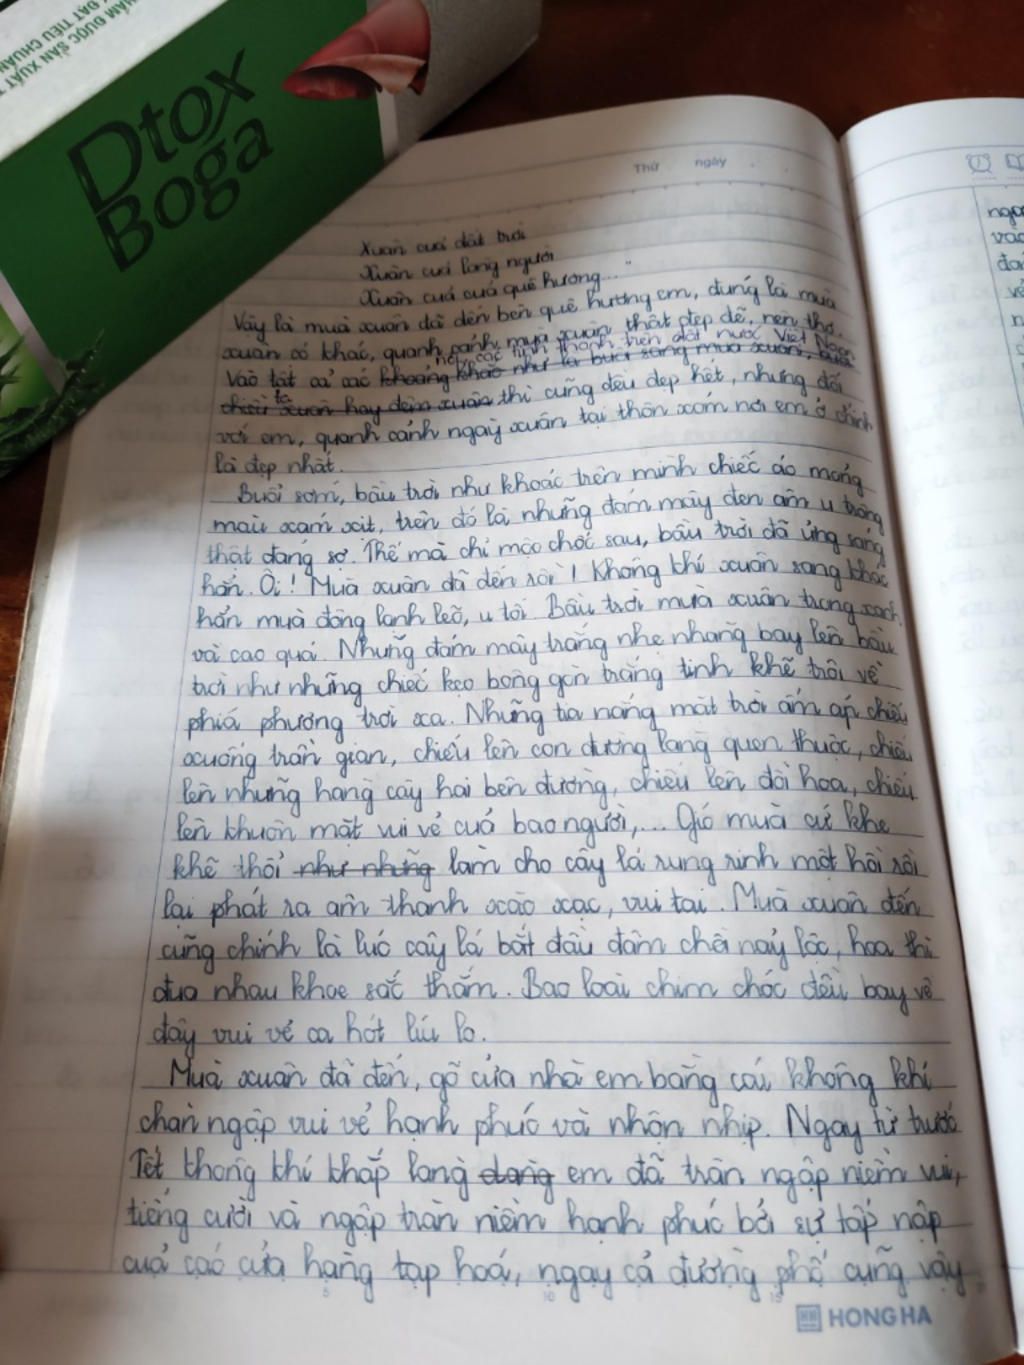 ĐẠT TIÊU CHUẨN
PHẨM ĐƯỢC SẢN XUẤT T
Dtox
Boga
Thứ ngày
Xuân của đất trời
Xuân của lòng người
Xuân của của quê hương..."
Vậy là mùa xuân đã đến bên quê hương em, đúng là mùa
xuân có khác, quanh cảnh mùa xuân thật đẹp đẽ, nên thơ.
nơi, các tỉnh thành trên đất nước Việt Nam
Vào tất cả các khoảng khắc như là buổi sáng mùa xuân, buổi
ta
chiều xuân hay đêm xuân thì cũng đều đẹp hết, nhưng đối
với em, quanh cảnh ngày xuân tại thôn xóm nơi em ở chính
là đẹp nhất.
Buổi sớm, bầu trời như khoác trên mình chiếc áo mỏng
màu xám xịt, trên đó là những đám mây đen âm u trông
thật đáng sợ. Thế mà chỉ một chốc sau, bầu trời đã ửng sáng
hẳn. Ôi! Mùa xuân đã đến rồi! Không khí xuân sang khác
hẳn mùa đông lạnh lẽo, u tối. Bầu trời mùa xuân trong xanh
và cao quá. Những đám mây trắng nhẹ nhàng bay lên bầu
trời như những chiếc kẹo bông gòn trắng tinh khẽ trôi về
phía phương trời xa. Những tia nắng mặt trời ấm áp chiếu
xuống trần gian, chiếu lên con đường làng quen thuộc, chiếu
lên những hàng cây hai bên đường, chiếu lên đồi hoa, chiếu
lên khuôn mặt vui vẻ của bao người,... Gió mùa cứ khe
khẽ thổi như những làm cho cây lá rung rinh một hồi rồi
lại phát ra âm thanh xào xạc, vui tai. Mùa xuân đến
cũng chính là lúc cây lá bắt đầu đâm chồi nảy lộc, hoa thi
đua nhau khoe sắc thắm. Bao loài chim chóc đều bay về
đây vui vẻ ca hót líu lo.
Mùa xuân đã đến, gõ cửa nhà em bằng cái không khí
chàn ngập vui vẻ hạnh phúc và nhộn nhịp. Ngay từ trước
Tết không khí khắp làng dạng em đã tràn ngập niềm vui,
tiếng cười và ngập tràn niềm hạnh phúc bởi sự tấp nập
của các cửa hàng tạp hoá, ngay cả đường phố cũng vậy
5 10 15
HONG HA